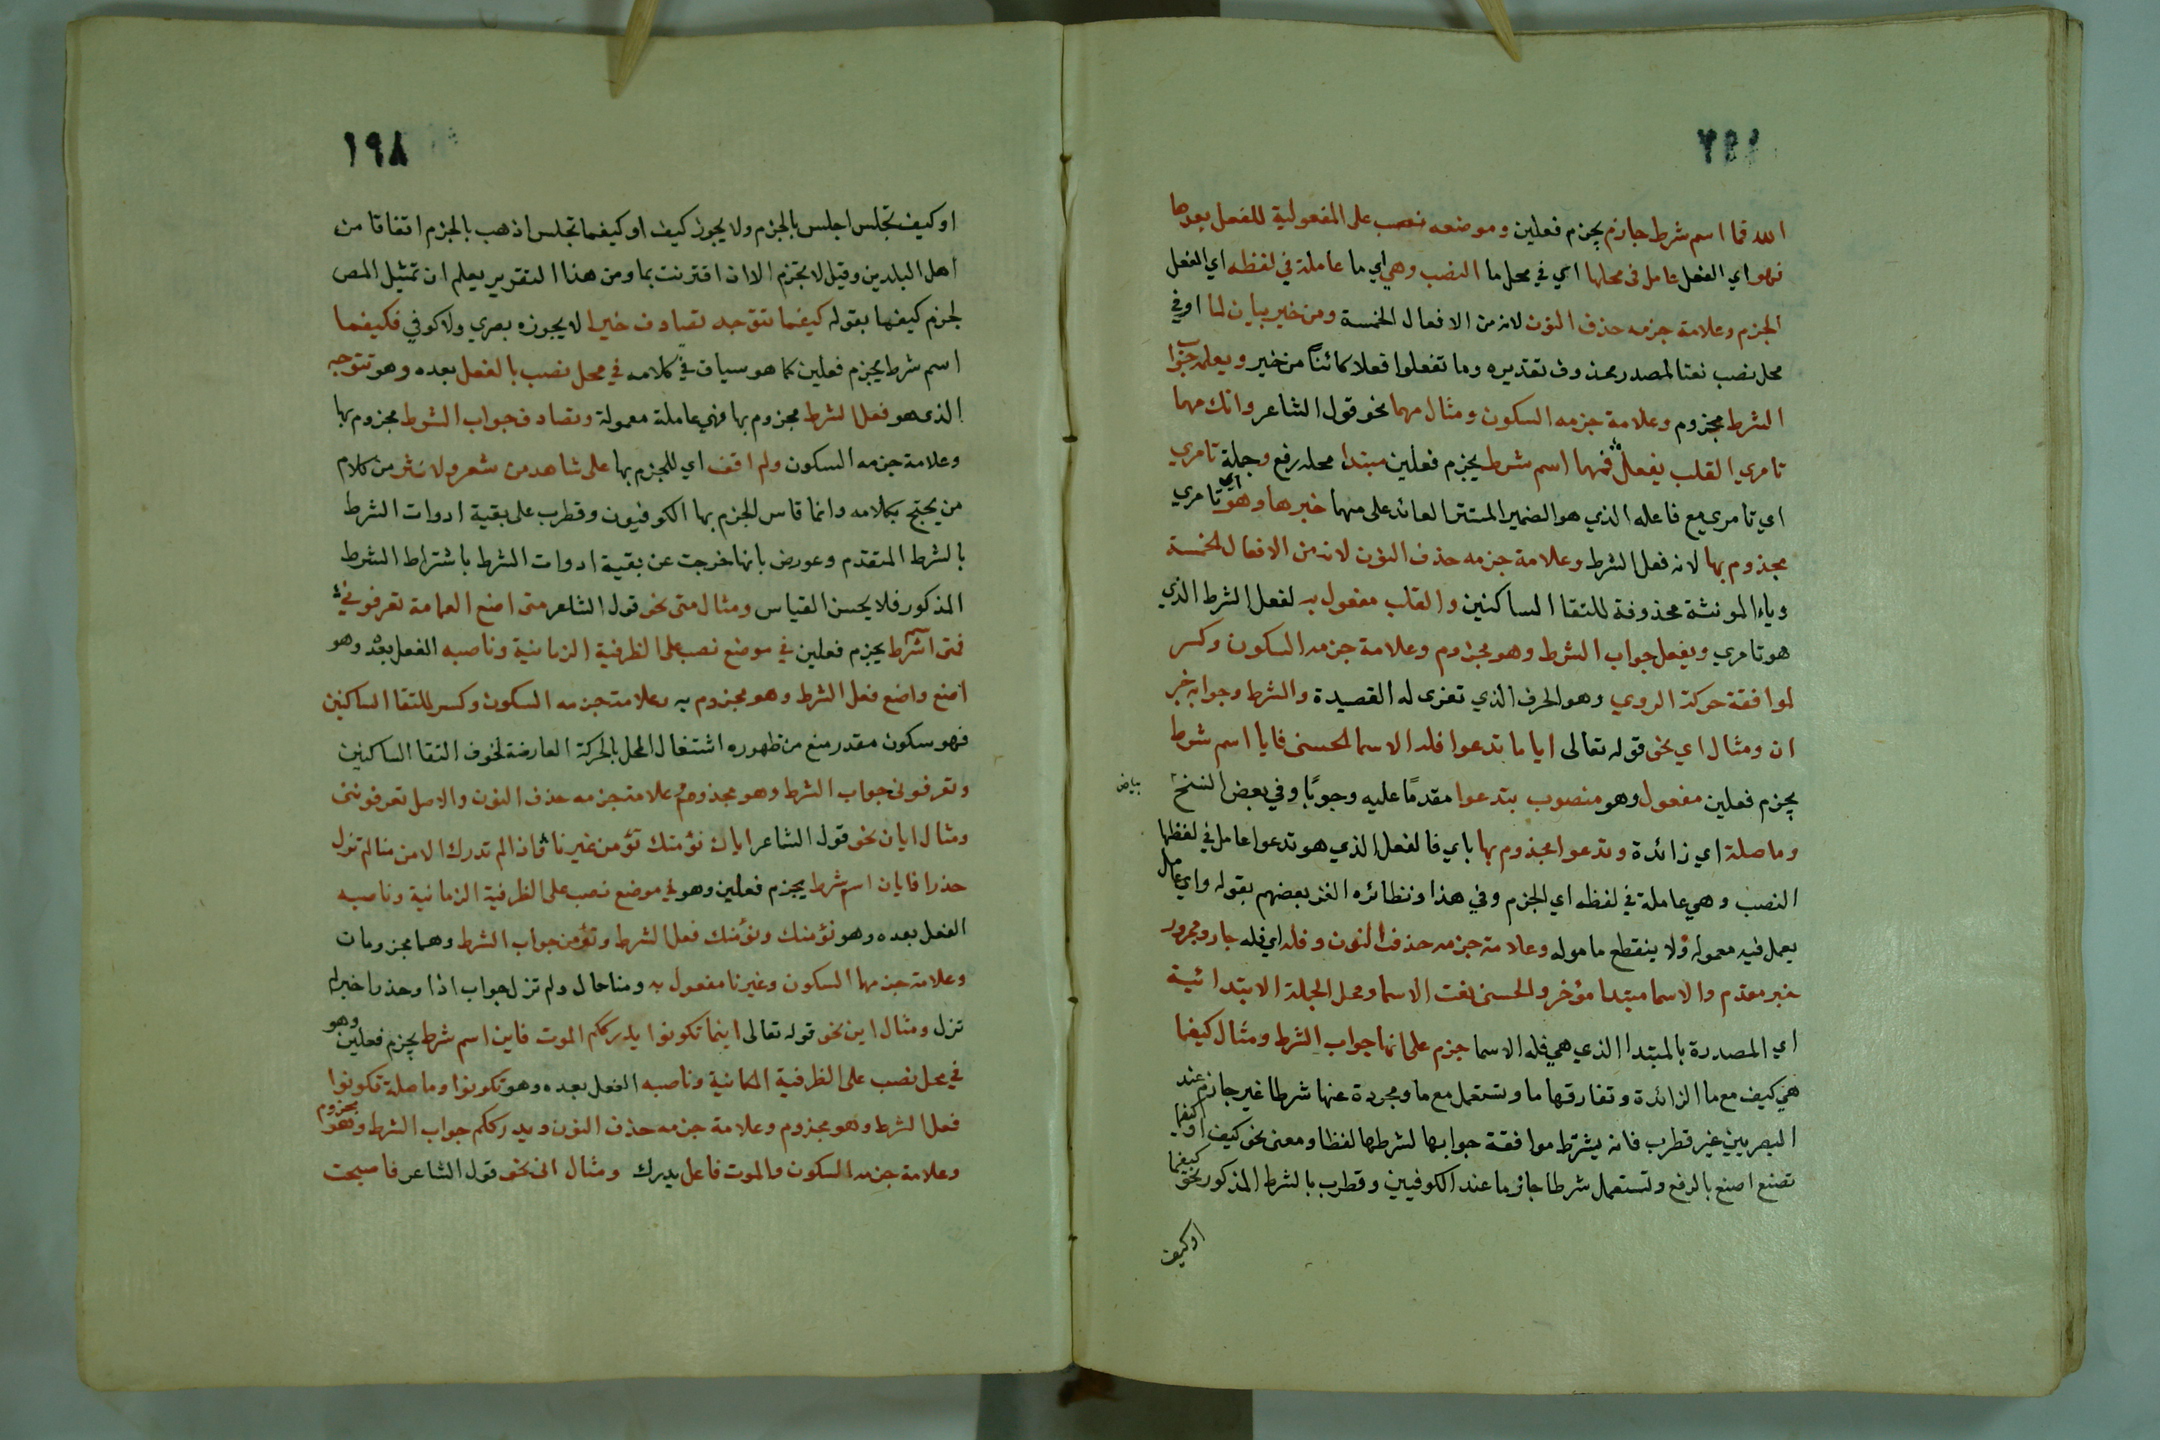 الله فما اسم شرط جازم يجزم فعلين وموضعه نصب على المفعولية للفعل بعدها
فهو اي الفعل عامل في محلها اي في محل ما النصب وهي اي ما عاملة في لفظه اي الفعل
الجزم وعلامة جزمه حذف النون لانه من الافعال الخمسة ومن خير بيان لما او في
محل نصب نعتا لمصدر محذوف تقديره وما تفعلوا فعلا كائنا من خير ويعلمه جواب
الشرط مجزوم وعلامة جزمه السكون ومثال مهما نحو قول الشاعر وانك مهما
تامري القلب يفعل فمهما اسم شرط يجزم فعلين مبتدا محله رفع وجملة تامري
اي تامري مع فاعله الذي هو الضمير المستتر العائد على مهما خبرها وهو اي تامري
مجذوم بها لانه فعل الشرط وعلامة جزمه حذف النون لانه من الافعال الخمسة
وياء المونثة محذوفة للتقا الساكنين والقلب مفعول به لفعل الشرط الذي
هو تامري ويفعل جواب الشرط وهو مجزوم وعلامة جزمه السكون وكسر
لموافقة حركة الروي وهو الحرف الذي تعزى له القصيدة والشرط وجوابه خبر
ان ومثال اي نحو قوله تعالى ايا ما تدعوا فله الاسما الحسنى فايا اسم شرط
يجزم فعلين مفعول وهو منصوب بتدعوا مقدمًا عليه وجوبًا وفي بعض النسخ
بياض
وما صلة اي زائدة وتدعوا مجذوم بها باي فالفعل الذي هو تدعوا عامل في لفظها
النصب وهي عاملة في لفظه اي الجزم وفي هذا ونظائره الغز بعضهم بقوله واي عامل
يعمل فيه معموله ولا ينقطع ماموله وعلامة جزمه حذف النون وفله اي فله جار ومجرور
خبر مقدم والاسما مبتدا مؤخر والحسنى نعت الاسما ومحل الجملة الابتدائية
اي المصدرة بالمبتدا الذي هي فله الاسما جزم على انها جواب الشرط ومثال كيفما
هي كيف مع ما الزائدة وتفارقها ما وتستعمل مع ما ومجردة عنها شرطا غير جازم عند
البصريين غير قطرب فانه يشترط موافقة جوابها لشرطها لفظا ومعنى نحو كيف او كيفما
تصنع اصنع بالرفع وتستعمل شرطا جازما عند الكوفيين وقطرب بالشرط المذكور نحو كيفما
او كيف
١٩٨
او كيف تجلس اجلس بالجزم ولا يجوز كيف او كيفما تجلس اذهب بالجزم اتفاقا من
اهل البلدين وقيل لا يجزم الا ان اقترنت بما ومن هذا التقرير يعلم ان تمثيل المص
لجزم كيفما بقوله كيفما تتوجه تصادف خيرا لا يجوزه بصري ولا كوفي فكيفما
اسم شرط يجزم فعلين كما هو سياق في كلامه في محل نصب بالفعل بعده وهو تتوجه
الذي هو فعل الشرط مجزوم بها فهي عاملة معمولة وتصادف جواب الشرط مجزوم بها
وعلامة جزمه السكون ولم اقف اي للجزم بها على شاهد من شعر ولا نثر من كلام
من يحتج بكلامه وانما قاس للجزم بها الكوفيون وقطرب على بقية ادوات الشرط
بالشرط المتقدم وعورض بانها خرجت عن بقية ادوات الشرط باشتراط الشرط
المذكور فلا يحسن القياس ومثال متى نحو قول الشاعر متى اضع العمامة تعرفوني
فمتى اسم شرط يجزم فعلين في موضع نصب على الظرفية الزمانية وناصبه الفعل بعده وهو
اضع واضع فعل الشرط وهو مجزوم به وعلامة جزمه السكون وكسر للتقا الساكنين
فهو سكون مقدر منع من ظهوره اشتغال المحل بالحركة العارضة لخوف التقا الساكنين
وتعرفوني جواب الشرط وهو مجذوم وعلامة جزمه حذف النون والاصل تعرفونني
ومثال ايان نحو قول الشاعر ايان نؤمنك تؤمن غيرنا واذا لم تدرك الامن منا لم تزل
حذرا فايان اسم شرط يجزم فعلين وهو في موضع نصب على الظرفية الزمانية وناصبه
الفعل بعده وهو نؤمنك ونؤمنك فعل الشرط وتؤمن جواب الشرط وهما مجزومان
وعلامة جزمهما السكون وغيرنا مفعول به ومنا حال ولم تزل جواب اذا وحذرا خبر لم
تزل ومثال اين نحو قوله تعالى اينما تكونوا يدرككم الموت فاين اسم شرط يجزم فعلين وهو
في محل نصب على الظرفية المكانية وناصبه الفعل بعده وهو تكونوا وما صلة تكونوا
فعل الشرط وهو مجذوم وعلامة جزمه حذف النون ويدرككم جواب الشرط وهو مجزوم
وعلامة جزمه السكون والموت فاعل يدرك ومثال انى نحو قول الشاعر فاصبحت